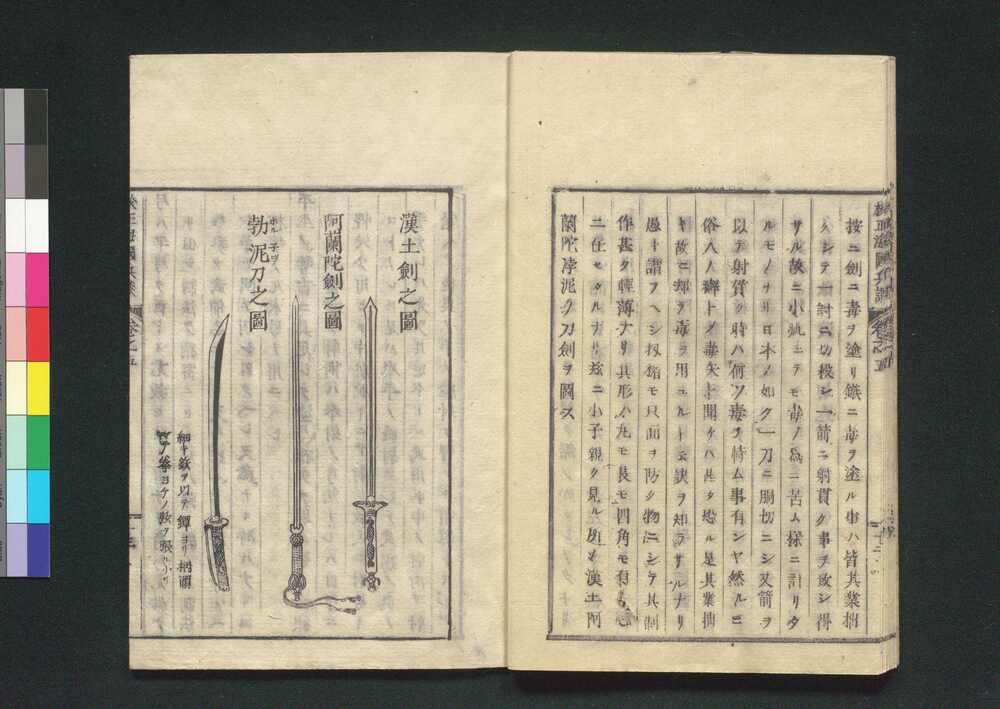 按ニ劍ニ毒ヲ塗リ鏃ニ毒ヲ塗ル事ハ皆其業拙
クシテ一討ニ切殺シ一箭ニ射貫ク事ヲ政シ得
サル故ニ小虱ニテモ毒ノ爲ニ苦ム樣ニ計リタ
ルモノナリ日本ノ如ク一刀ニ胴切ニシ又箭ヲ
以テ射貫ク時ハ何ソ毒ヲ恃ム事有ンヤ然ルニ
俗人ノ癖トノ毒矢ト聞ケハ甚タ恐ル是其業拙
キ故ニ却テ毒ヲ用ユルト云訣ヲ知ラサルナリ
愚ト謂フヘシ扨楯モ只面ヲ防ク物ニシテ其制
作甚タ輕薄ナリ其形ハ丸モ長モ四角モ有
ニ任セタルナリ茲ニ小子親ク見ル所ノ漢土阿
蘭陀浡泥ノ刀劍ヲ圖ス
漢土劍之圖
阿蘭陀劍之圖
勃泥刀之圖
細キ鉄ヲ以テ鐔ヨリ柄頭